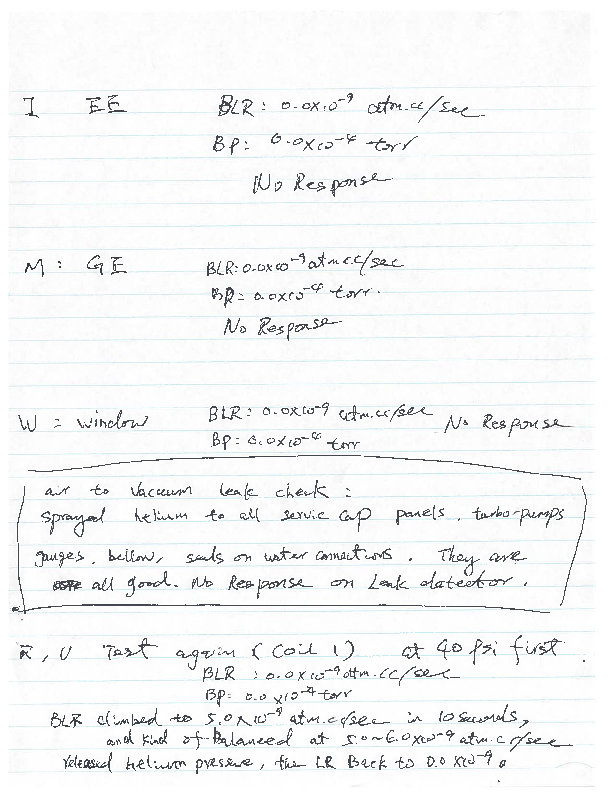 I EE BLR: 0.0x10⁻⁹ atm.cc/sec
BP: 0.0x10⁻⁴ torr
No Response
M: GE BLR: 0.0x10⁻⁹ atm.cc/sec
BP: 0.0x10⁻⁴ torr.
No Response
W = window BLR: 0.0x10⁻⁹ atm.cc/sec No Response
BP: 0.0x10⁻⁴ torr
air to Vaccum leak check:
sprayed helium to all servic cap panels, turbo-pumps
gauges, bellow, seals on water connections. They are
all good. No Response on Leak detector.
R, U Test again (Coil 1) at 40 psi first.
BLR: 0.0x10⁻⁹ atm.cc/sec
BP: 0.0x10⁻⁴ torr
BLR climbed to 5.0x10⁻⁹ atm.cc/sec in 10 seconds,
and kind of Balanced at 5.0~6.0x10⁻⁹ atm.cc/sec
released helium pressure, the LR Back to 0.0x10⁻⁹.